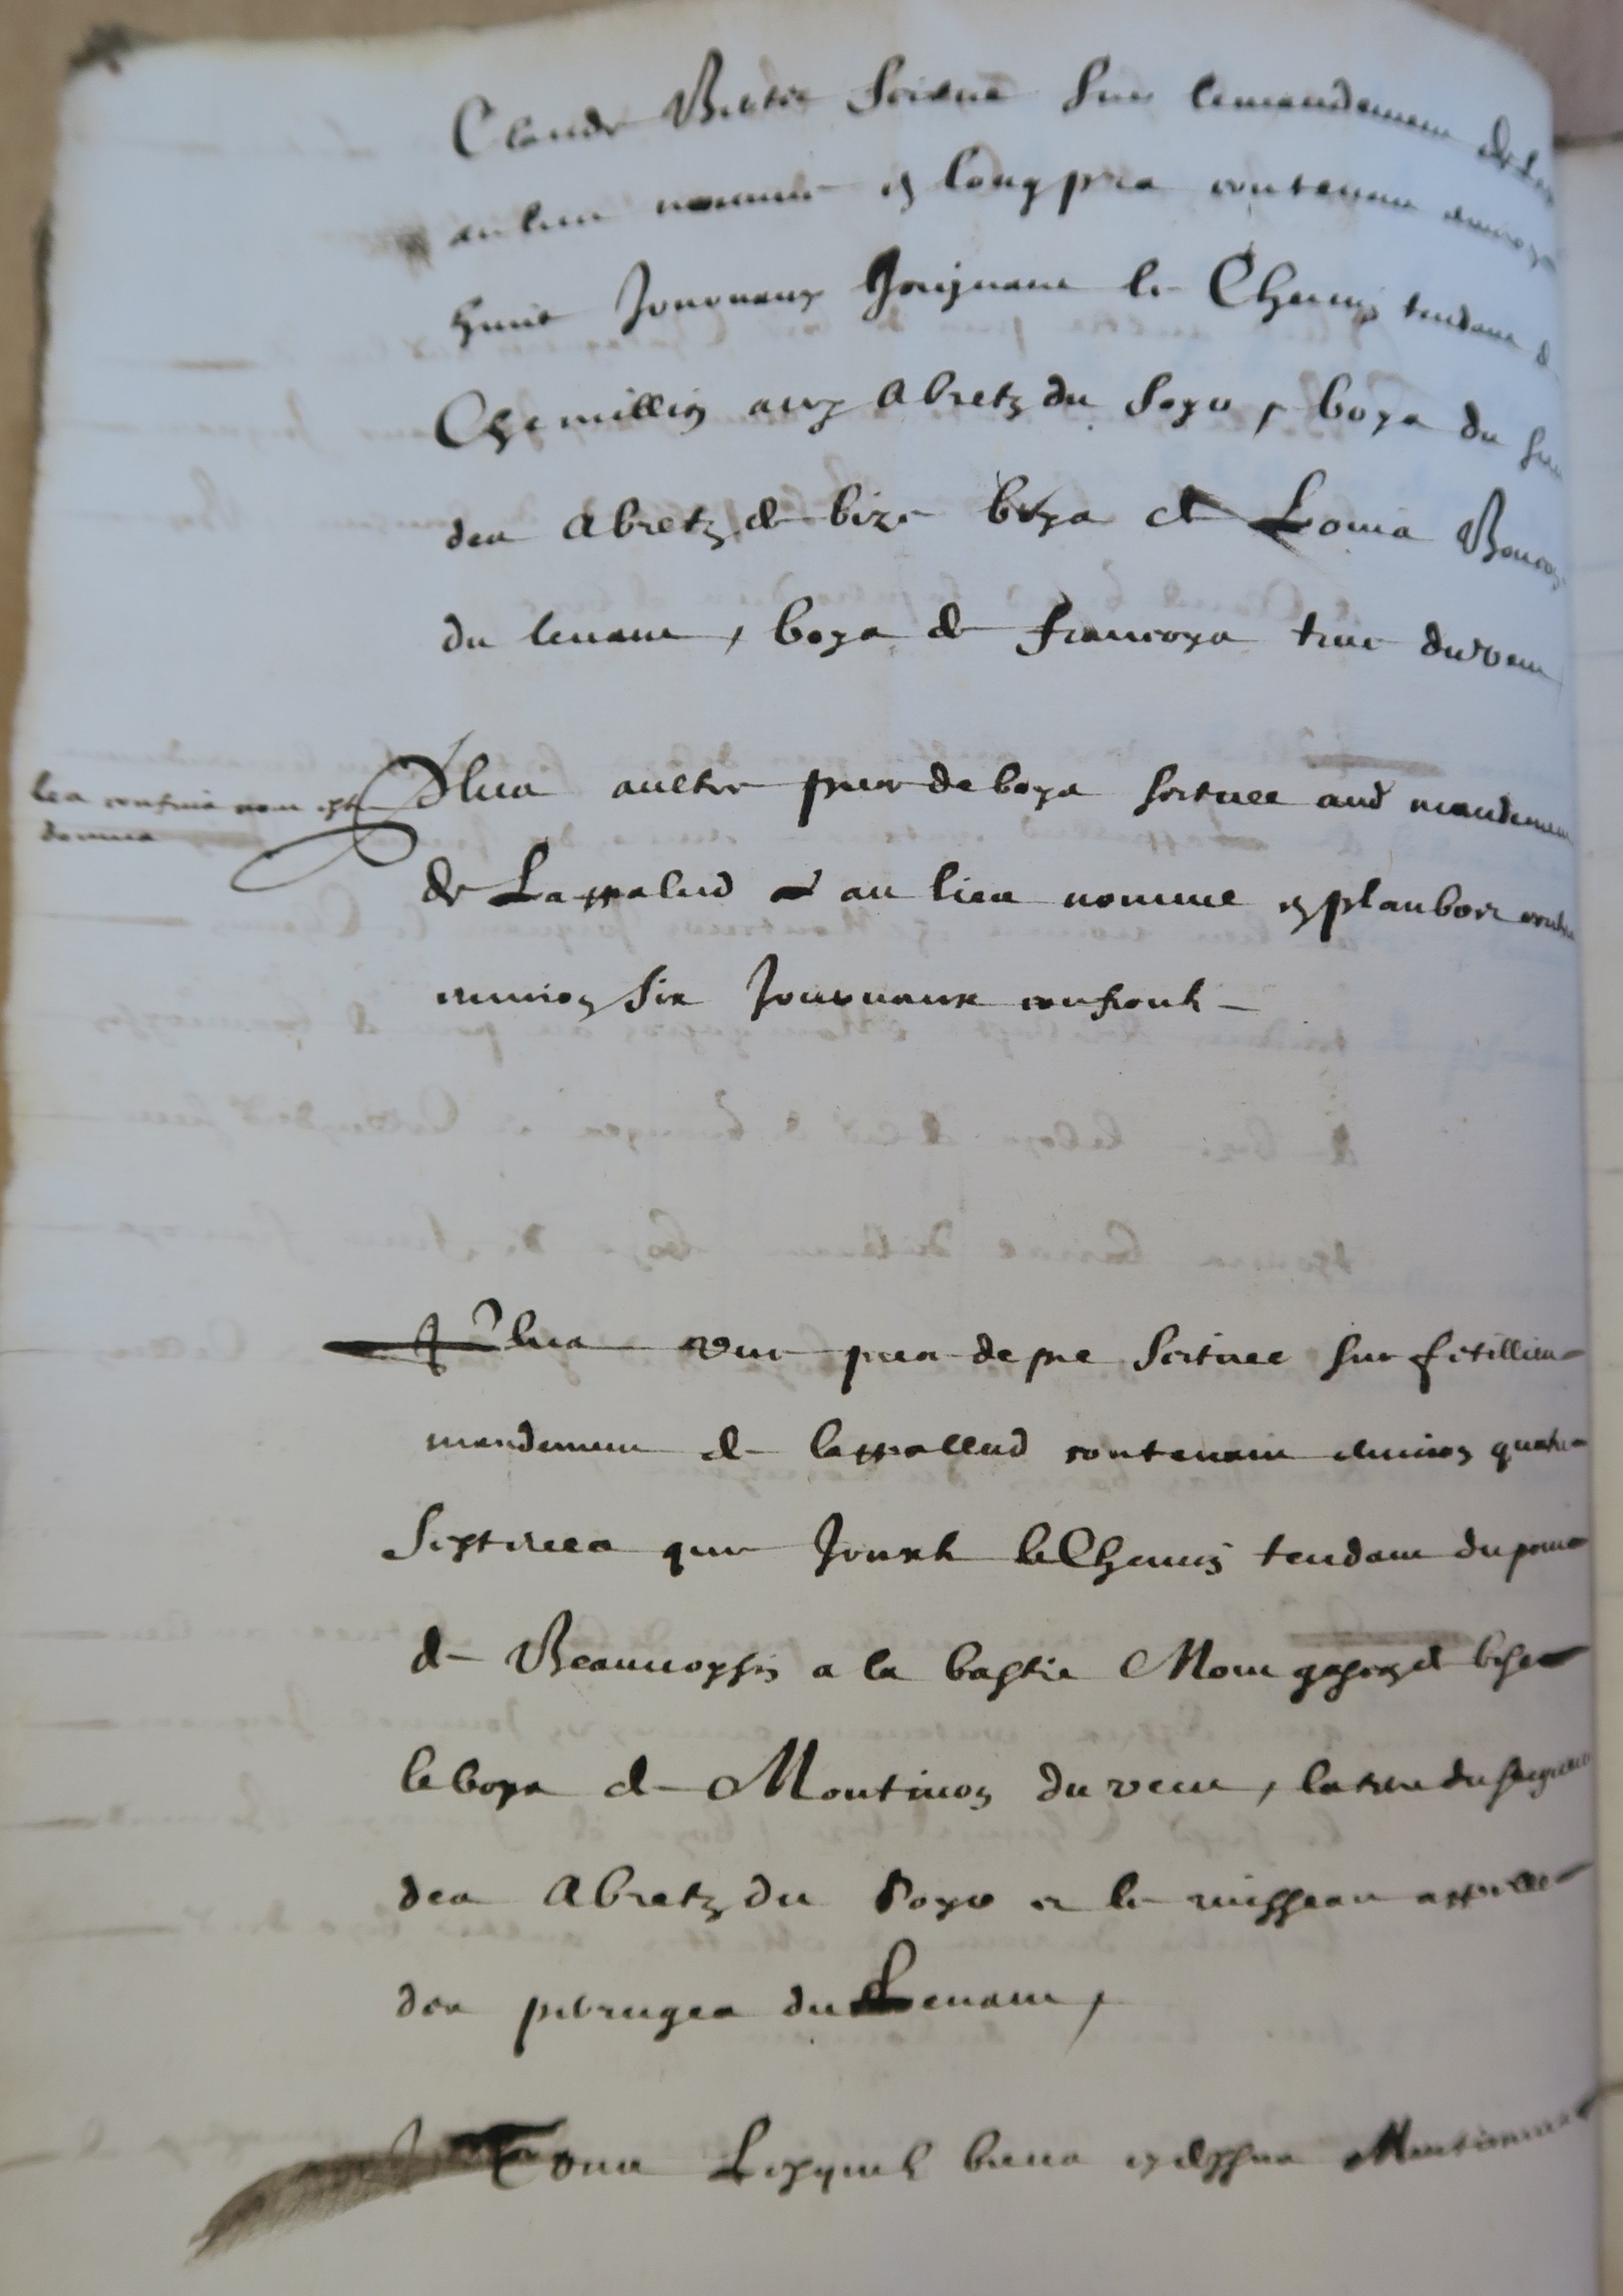 Claude Scitue sur lemandement de
au lieu nomme en Long pra contenant environ
huict Journaux Joignant le Chemin tendant de
Chemillin aux Abretz du soyr, boys du
des Abretz de bize boys de Louis
du levant, boys de francoys truc du vent
les confins nont este
donnes
Plus aultre piece de boys scituee aud mandement
de Lappalud au lieu nomme en planboix
environ six Journaux confront
Plus une piece de pre scituee sur fitillieu
mandement de lappallud contenant environ quatre
septrees que Jouxte le Chemin tendant du pont
de Beauvoysin a la bastie Mont gascon de bise
le boys de Montinon du vent, la terre du seigneur
des Abretz du soyr et le ruisseau appelle
des du Levant,
Tous Lesquels biens cy dessus Mentionnes